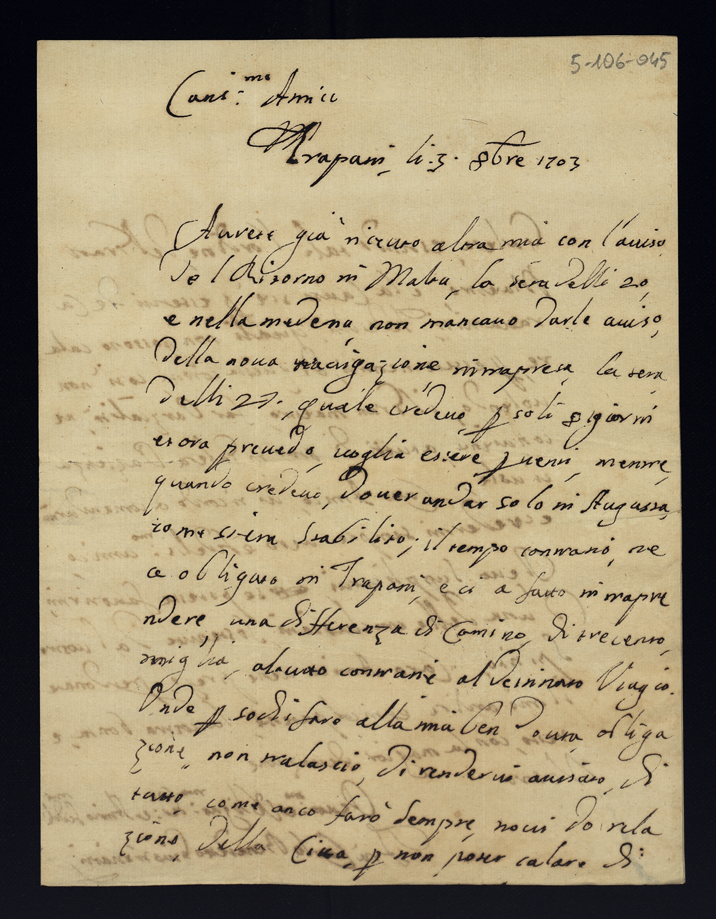 5-106-045
Caris:mo Amico
Trapani li 3. 8bre 1703
Averete già riceuto altra mia con l'aviso
del Ritorno in Malta, la sera delli 20,
e nella medema, non mancavo darle aviso,
della nova navigazione intrapresa, la sera
delli 27., quale credevo, p soli 8 giorni
et ora prevedo, voglia essere p venti, mentre,
quando credevo, dover andar solo in Augusta,
come si era stabilito; il tempo contrario, ne
a obligato in Trapani, e ci a fatto intrapre
ndere, una differenza di Camino, di trecento,
miglia, al tutto contrarie al destinato Viagio.
Onde p sodisfare alla mia ben douta obliga
zione, non tralascio, di rendervi avisato, di
tutto come anco farò sempre, no vi do rela
zione, della Cita, p non poter calare di: